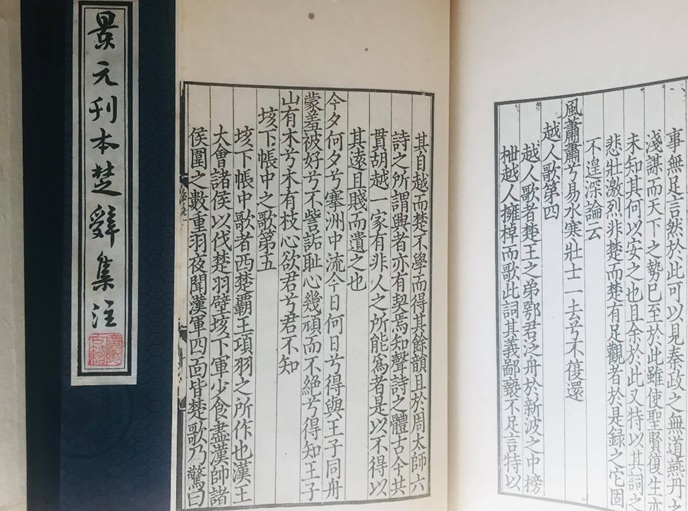 景元刊本楚辭集注
事無足言然於此可見秦政之無道燕丹之
淺謀而天下之勢已至於此雖使聖賢復生亦
未知其何以安之也且余於此又特以其詞之
悲壯激烈非楚而楚有足觀者於是錄之它固
不遑深論云
風蕭蕭兮易水寒壯士一去兮不復還
越人歌第四
越人歌者楚王之弟鄂君泛舟於新波之中榜
枻越人擁棹而歌此詞其義鄙褻不足言特以
其自越而楚不學而得其餘韻且於周太師六
詩之所謂興者亦有契焉知聲詩之體古今共
貫胡越一家有非人之所能爲者是以不得以
其遠且賤而遺之也
今夕何夕兮搴洲中流今日何日兮得與王子同舟
蒙羞被好兮不訾詬恥心幾頑而不絕兮得知王子
山有木兮木有枝心欲君兮君不知
垓下帳中之歌第五
垓下帳中歌者西楚霸王項羽之所作也漢王
大會諸侯以伐楚羽壁垓下軍少食盡漢帥諸
侯圍之數重羽夜聞漢軍四面皆楚歌乃驚曰